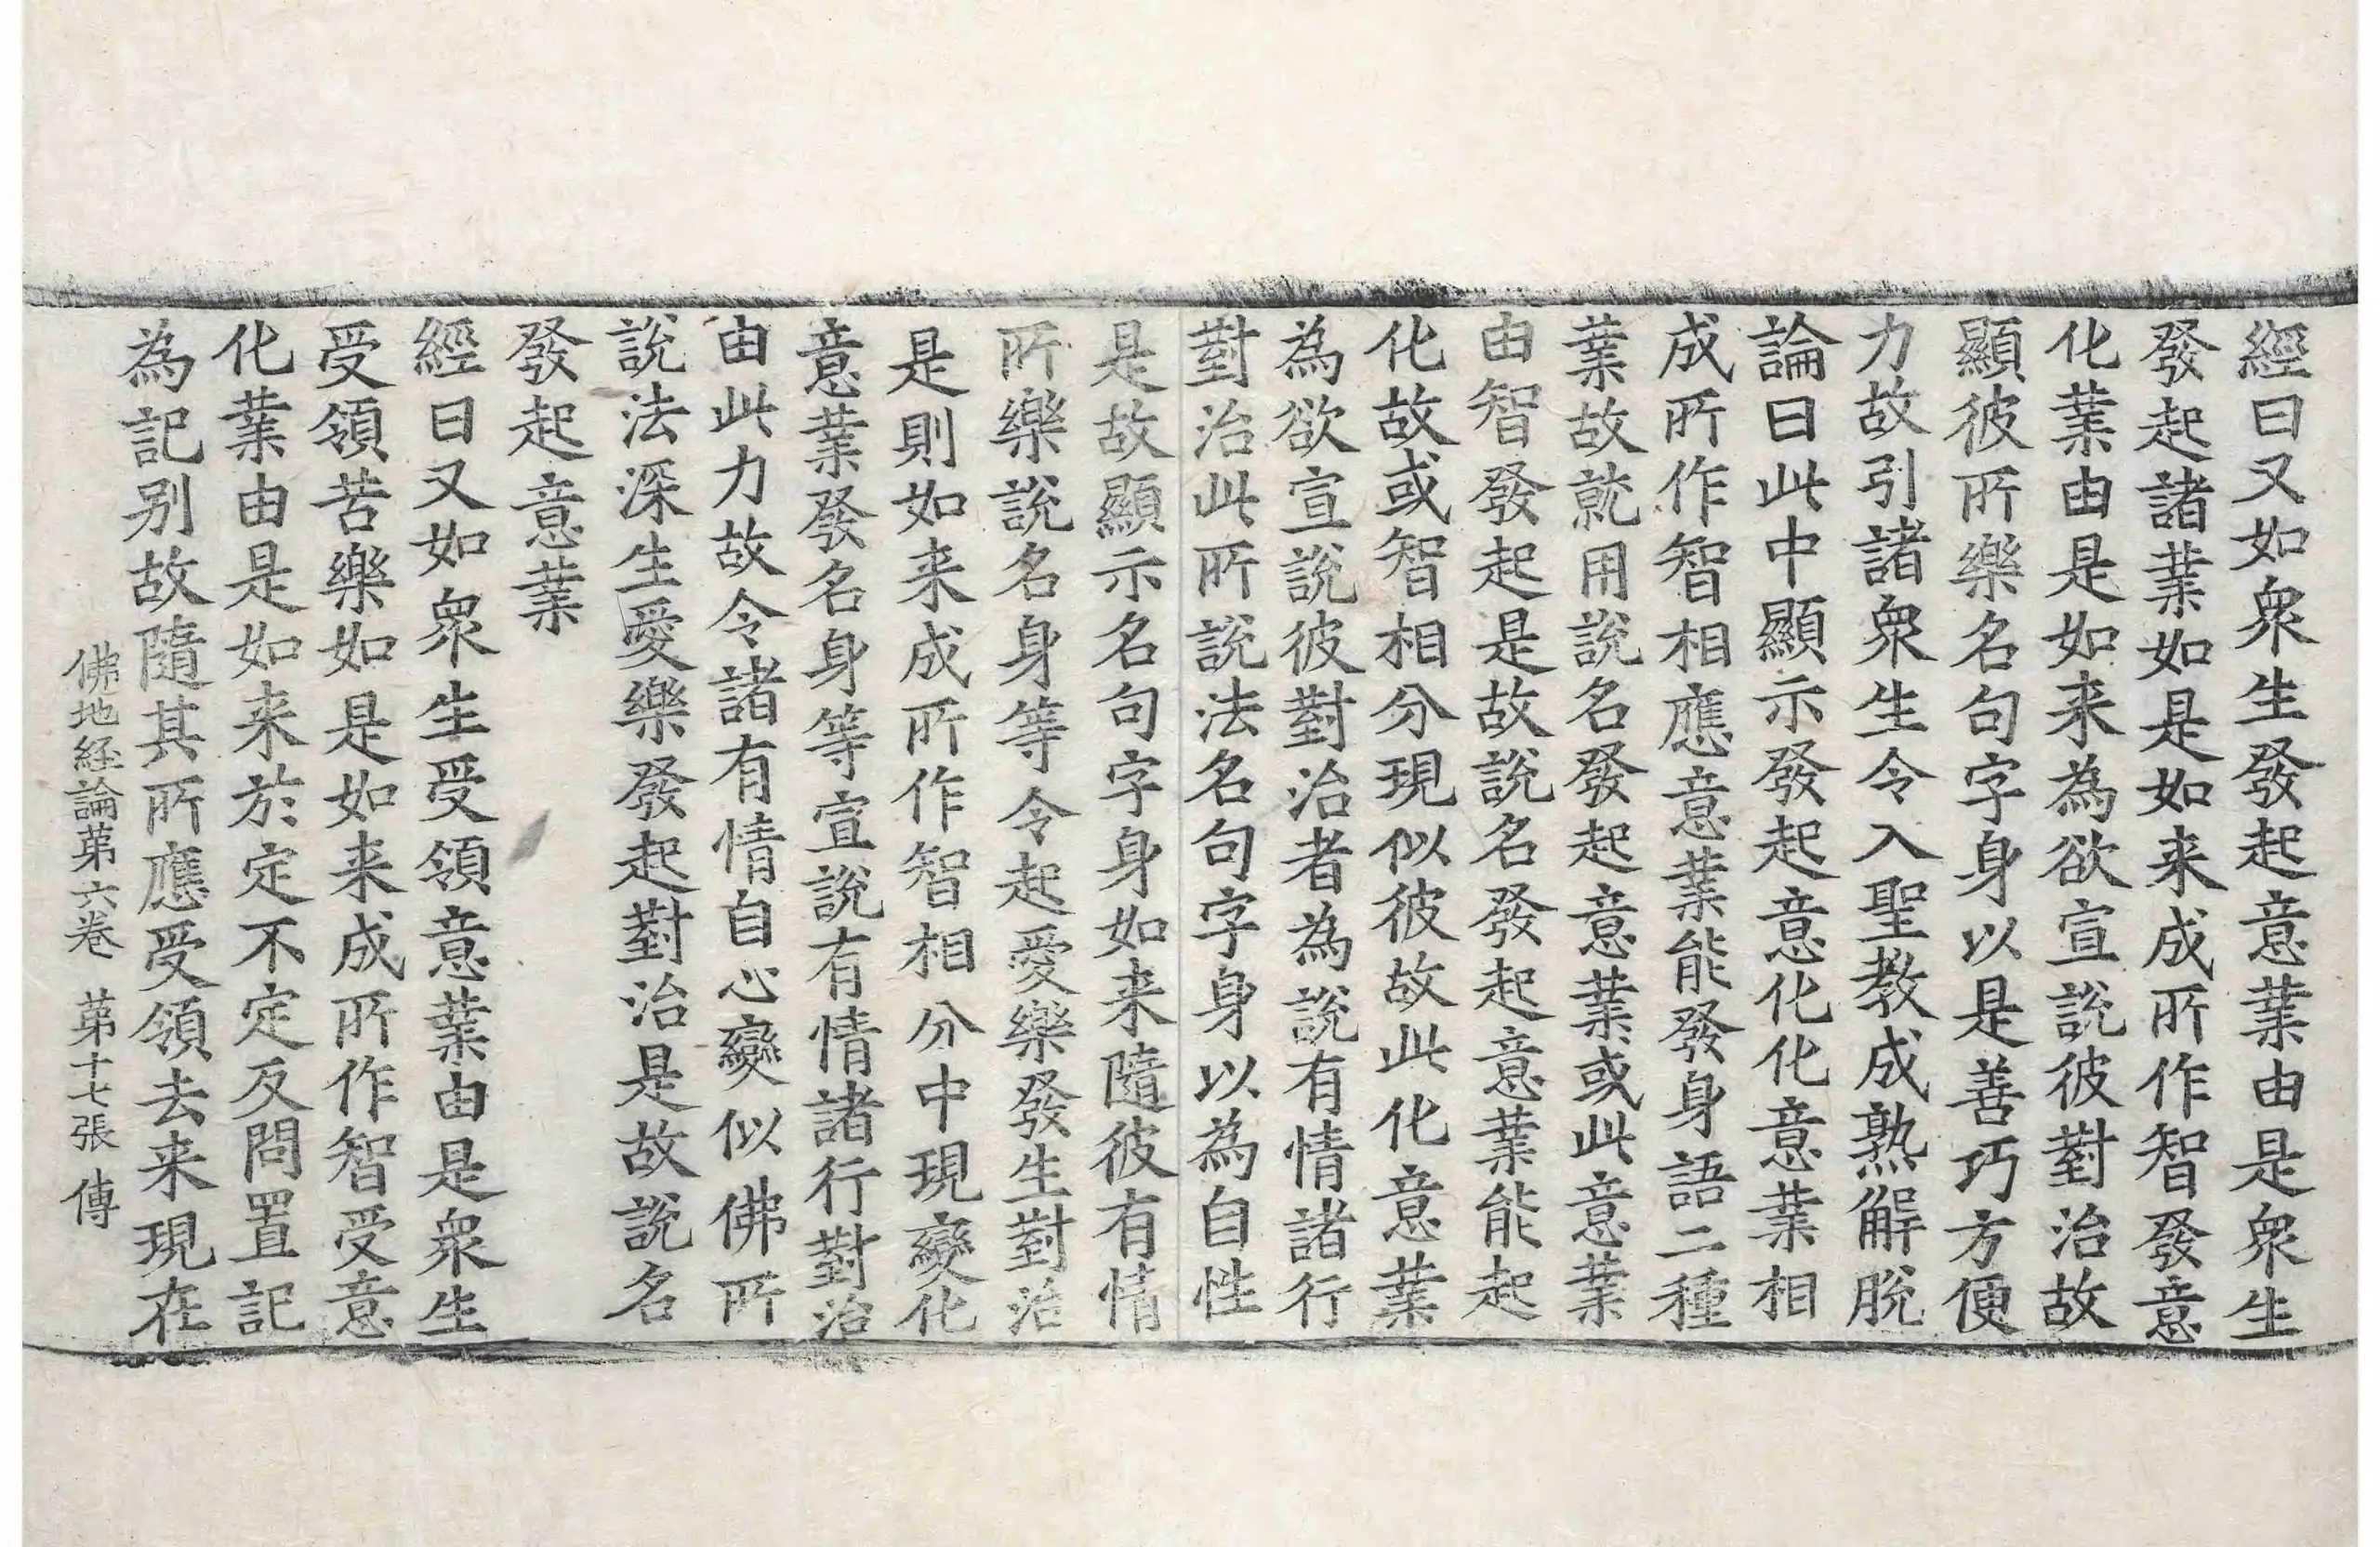 經曰又如衆生發起意業由是衆生
發起諸業如是如来成所作智發意
化業由是如来為欲宣說彼對治故
顯彼所樂名句字身以是善巧方便
力故引諸衆生令入聖教成熟解脫
論曰此中顯示發起意化化意業相
成所作智相應意業能發身語二種
業故就用說名發起意業或此意業
由智發起是故說名發起意業能起
化故或智相分現似彼故此化意業
為欲宣說彼對治者為說有情諸行
對治此所說法名句字身以為自性
是故顯示名句字身如来隨彼有情
所樂說名身等令起愛樂發生對治
是則如来成所作智相分中現變化
意業發名身等宣說有情諸行對治
由此力故令諸有情自心變似佛所
說法深生愛樂發起對治是故說名
發起意業
經曰又如衆生受領意業由是衆生
受領苦樂如是如来成所作智受意
化業由是如来於定不定反問置記
為記别故隨其所應受領去来現在
佛地経論第六卷 第十七張 傳